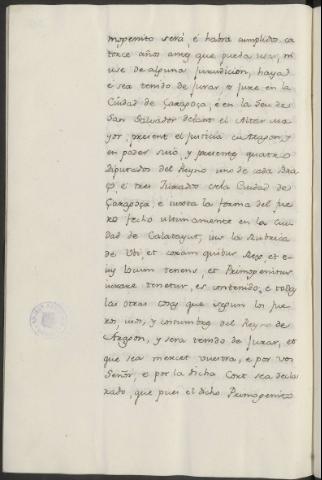 mogenito será, é habrá cumplido, ca
torce años antes que pueda usar, ni
use de alguna jurisdicion, haya d
e sea tenido de jurar, o jure en la
Ciudad de Çaragoça, é en la Seu de
San Salvador delant el Altar ma
yor, present el Justicia de Aragon, y
en poder suio, y presentes quatro
Diputados del Reyno uno de cada Bra
ço, é tres Jurados de la Ciudad de
Çaragoça, é iuxta la forma del fue
ro fecho ultimamente en la Ciu
dad de Calatayut, ius la Rubrica
de Ubi, et coram quibus Rex, et e
ius locum tenens, et Primogenitus
iurare tenetur, es contenido, e todas
las otras cosas que segun los fue
ros, usos, y costumbres del Reyno de
Aragon, y sera tenido de jurar, et
que sea mercet vuestra, e por vos
Señor, e por la dicha Cort sea decla
rado, que pues el dicho Primogenito